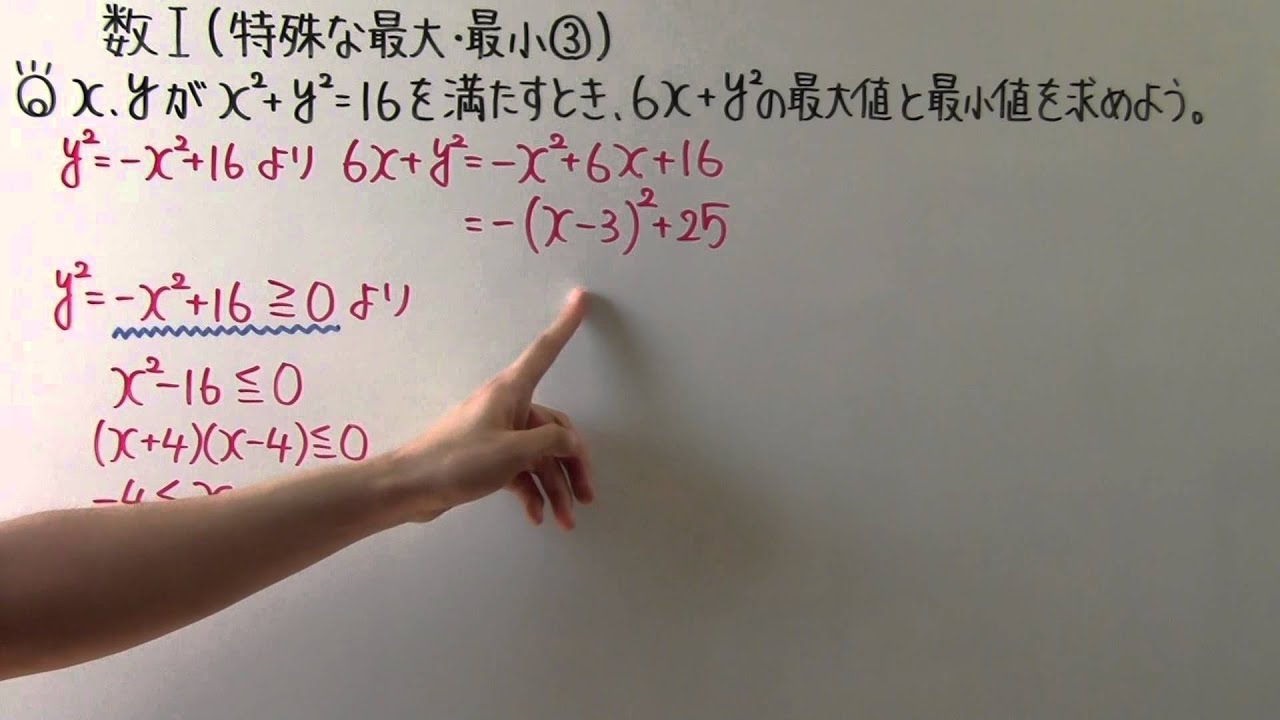 数I(特殊な最大・最小③)
x、yがx²+y²=16を満たすとき、6x+y²の最大値と最小値を求めよう。
y²=-x²+16より 6x+y²=-x²+6x+16
=-(x-3)²+25
y²=-x²+16≧0より
x²-16≦0
(x+4)(x-4)≦0